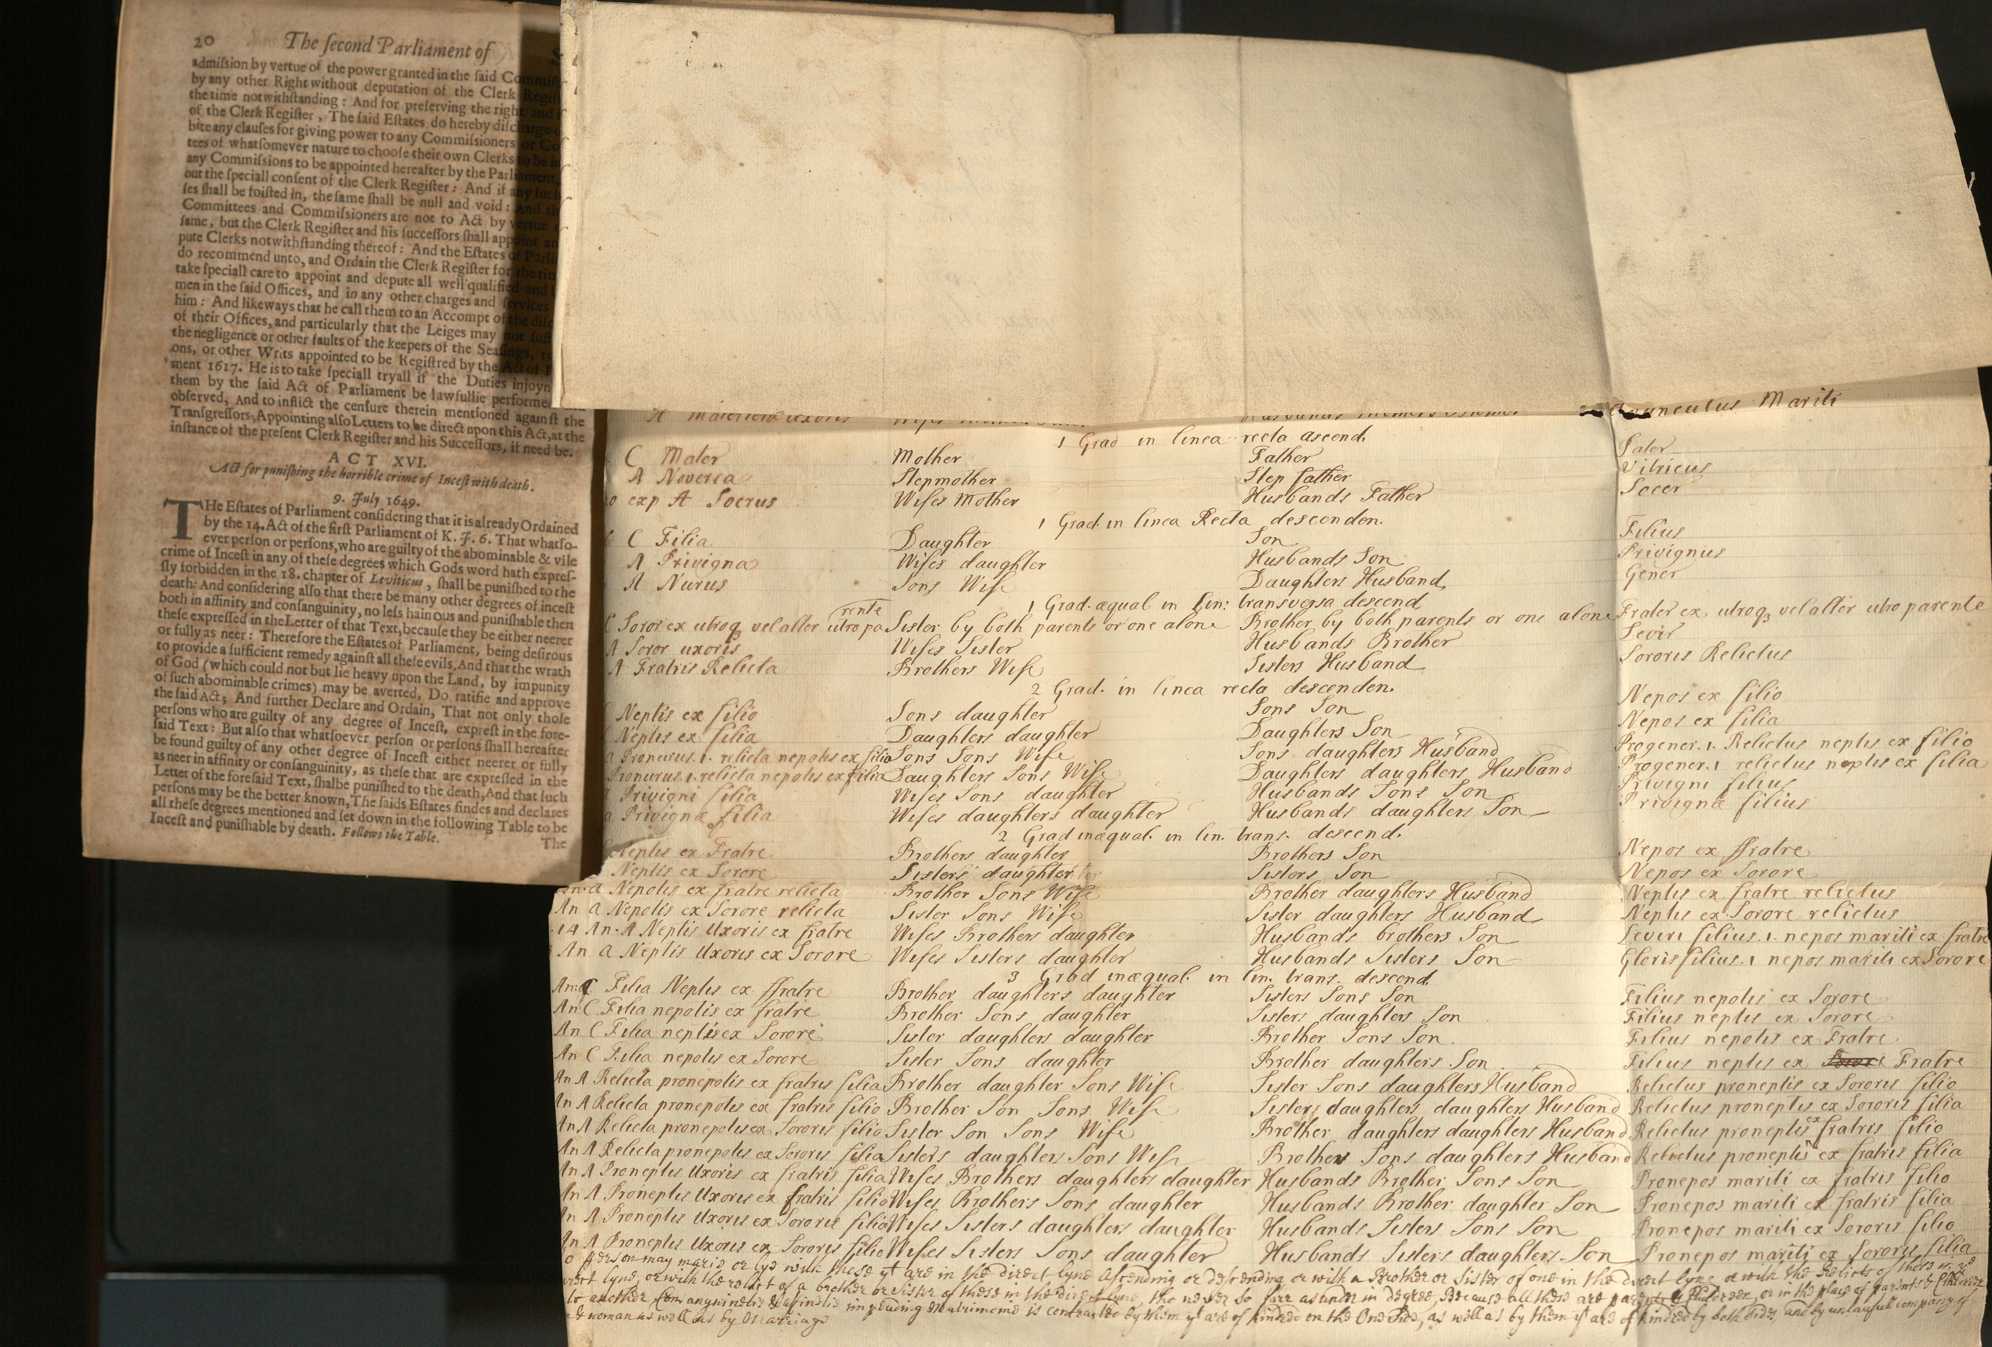 20 The ſecond Parliament of
admiſsion by vertue of the power granted in the ſaid
by any other Right without deputation of the Clerk
the time notwithſtanding: And for preſerving the right
of the Clerk Regiſter, The ſaid Eſtates do hereby diſcharge
bite any clauſes for giving power to any Commiſsioners or
tees of whatſomever nature to chooſe their own Clerks to be
any Commiſsions to be appointed hereafter by the Parliament,
out the ſpeciall conſent of the Clerk Regiſter: And if any
ſes ſhall be foiſted in, the ſame ſhall be null and void: And
Committees and Commiſsioners are not to Act by vertue
ſame, but the Clerk Regiſter and his ſucceſſors ſhall appoint
pute Clerks notwithſtanding thereof: And the Eſtates of
do recommend unto, and Ordain the Clerk Regiſter for the
take ſpeciall care to appoint and depute all well qualified
men in the ſaid Offices, and in any other charges and ſervices
him: And likeways that he call them to an Accompt of the
of their Offices, and particularly that the Leiges may not
the negligence or other faults of the keepers of the
ons, or other Writs appointed to be Regiſtred by the Act of
ment 1617. He is to take ſpeciall tryall if the Duties
them by the ſaid Act of Parliament be lawfullie performed
obſerved, And to inflict the cenſure therein mentioned againſt the
Tranſgreſſors, Appointing alſo Letters to be direct upon this Act, at the
inſtance of the preſent Clerk Regiſter and his Succeſſors, if need be.
ACT XVI.
Act for puniſhing the horrible crime of Inceſt with death.
9. July 1649.
THe Eſtates of Parliament conſidering that it is already Ordained
by the 14. Act of the firſt Parliament of K. J. 6. That whatſo-
ever perſon or perſons, who are guilty of the abominable & vile
crime of Inceſt in any of theſe degrees which Gods word hath expreſ-
ſly forbidden in the 18. chapter of Leviticus, ſhall be puniſhed to the
death: And conſidering alſo that there be many other degrees of inceſt
both in affinity and conſanguinity, no leſs hainous and puniſhable then
theſe expreſſed in the Letter of that Text, becauſe they be either neerer
or fully as neer: Therefore the Eſtates of Parliament, being deſirous
to provide a ſufficient remedy againſt all theſe evils, And that the wrath
of God (which could not but lie heavy upon the Land, by impunity
of ſuch abominable crimes) may be averted, Do ratifie and approve
the ſaid Act; And further Declare and Ordain, That not only thoſe
perſons who are guilty of any degree of Inceſt, expreſt in the fore-
ſaid Text: But alſo that whatſoever perſon or perſons ſhall hereafter
be found guilty of any other degree of Inceſt either neerer or fully
as neer in affinity or conſanguinity, as theſe that are expreſſed in the
Letter of the foreſaid Text, ſhalbe puniſhed to the death, And that ſuch
perſons may be the better known, The ſaids Eſtates findes and declares
all theſe degrees mentioned and ſet down in the following Table to be
Inceſt and puniſhable by death. Follows the Table.
The
Avunculus Mariti
1 Grad in linea recta ascend.
C Mater Mother Father Pater
A Noverca Stepmother Step father Vitricus
exp A Socrus Wifes Mother Husbands Father Socer
1 Grad. in linea Recta descenden.
C Filia Daughter Son Filius
A Privigna Wifes daughter Husbands Son Privignus
A Nurus Sons Wife Daughters Husband Gener
1 Grad. æqual in lin: transversa descend
C Soror ex utroq vel alter utro parente Sister by both parents or one alone Brother by both parents or one alone Frater ex utroq vel alter utro parente
A Soror uxoris Wifes Sister Husbands Brother Levir
A Fratris Relicta Brothers Wife Sisters Husband Sororis Relictus
2 Grad. in linea recta descenden.
Neptis ex filio Sons daughter Sons Son Nepos ex filio
Neptis ex filia Daughters daughter Daughters Son Nepos ex filia
Pronurus .i. relicta nepotis ex filio Sons Sons Wife Sons daughters Husband Progener .i. Relictus neptis ex filio
Pronurus .i. relicta nepotis ex filia Daughters Sons Wife Daughters daughters Husband Progener .i relictus neptis ex filia
Privigni filia Wifes Sons daughter Husbands Sons Son Privigni filius
Privignæ filia Wifes daughters daughter Husbands daughters Son Privignæ filius
2 Grad inæqual. in lin. trans. descend.
Neptis ex Fratre Brothers daughter Brothers Son Nepos ex ffratre
Neptis ex Sorore Sisters daughter Sisters Son Nepos ex Sorore
An. a Nepotis ex fratre relicta Brother Sons Wife Brother daughters Husband Neptis ex fratre relictus
An a Nepotis ex Sorore relicta Sister Sons Wife Sister daughters Husband Neptis ex Sorore relictus
14 An. A Neptis Uxoris ex fratre Wifes Brothers daughter Husbands brothers Son Leveri filius .i. nepos mariti ex fratre
An a Neptis Uxoris ex Sorore Wifes Sisters daughter Husbands Sisters Son Gloris filius .i nepos mariti ex Sorore
3 Grad inæqual. in lin. trans. descend
An C Filia Neptis ex ffratre Brother daughters daughter Sisters Sons Son Filius nepotis ex Sorore
An C Filia nepotis ex fratre Brother Sons daughter Sisters daughters Son Filius neptis ex Sorore
An C Filia neptis ex Sorore Sister daughters daughter Brother Sons Son Filius nepotis ex Fratre
An C Filia nepotis ex Sorore Sister Sons daughter Brother daughters Son Filius neptis ex Fratre
An A Relicta pronepotis ex fratris filia Brother daughter Sons Wife Sister Sons daughters Husband Relictus proneptis ex Sororis filio
An A Relicta pronepotis ex fratris filio Brother Son Sons Wife Sisters daughters daughters Husband Relictus proneptis ex Sororis filia
An A Relicta pronepotis ex Sororis filio Sister Son Sons Wife Brother daughters daughters Husband Relictus proneptis ex fratris filio
An A Relicta pronepotis ex Sororis filia Sisters daughters Sons Wife Brothers Sons daughters Husband Relictus proneptis ex fratris filia
An A Proneptis Uxoris ex fratris filia Wifes Brothers daughters daughter Husbands Brother Sons Son Pronepos mariti ex fratris filio
An A Proneptis Uxoris ex fratris filio Wifes Brothers Sons daughter Husbands Brother daughter Son Pronepos mariti ex fratris filia
An A Proneptis Uxoris ex Sororis filia Wifes Sisters daughters daughter Husbands Sisters Sons Son Pronepos mariti ex Sororis filio
An A Proneptis Uxoris ex Sororis filio Wifes Sisters Sons daughter Husbands Sisters daughters Son Pronepos mariti ex Sororis filia
person may marie or lye with these yt are in the direct lyne Ascending or descending or with a Brother or Sister of one in the direct lyne or with the Relicts of these
lyne, or with the relict of a brother or Sister of these in the direct lyne, the never so farr asunder in degree, Because all these are
to another Consanguinitie & affinitie impeding Matrimonie is contracted by them yt are of kindred on the One side, as well as by them yt are of kindred by both sides, and by unlawfull company of
& woman as well as by Marriage